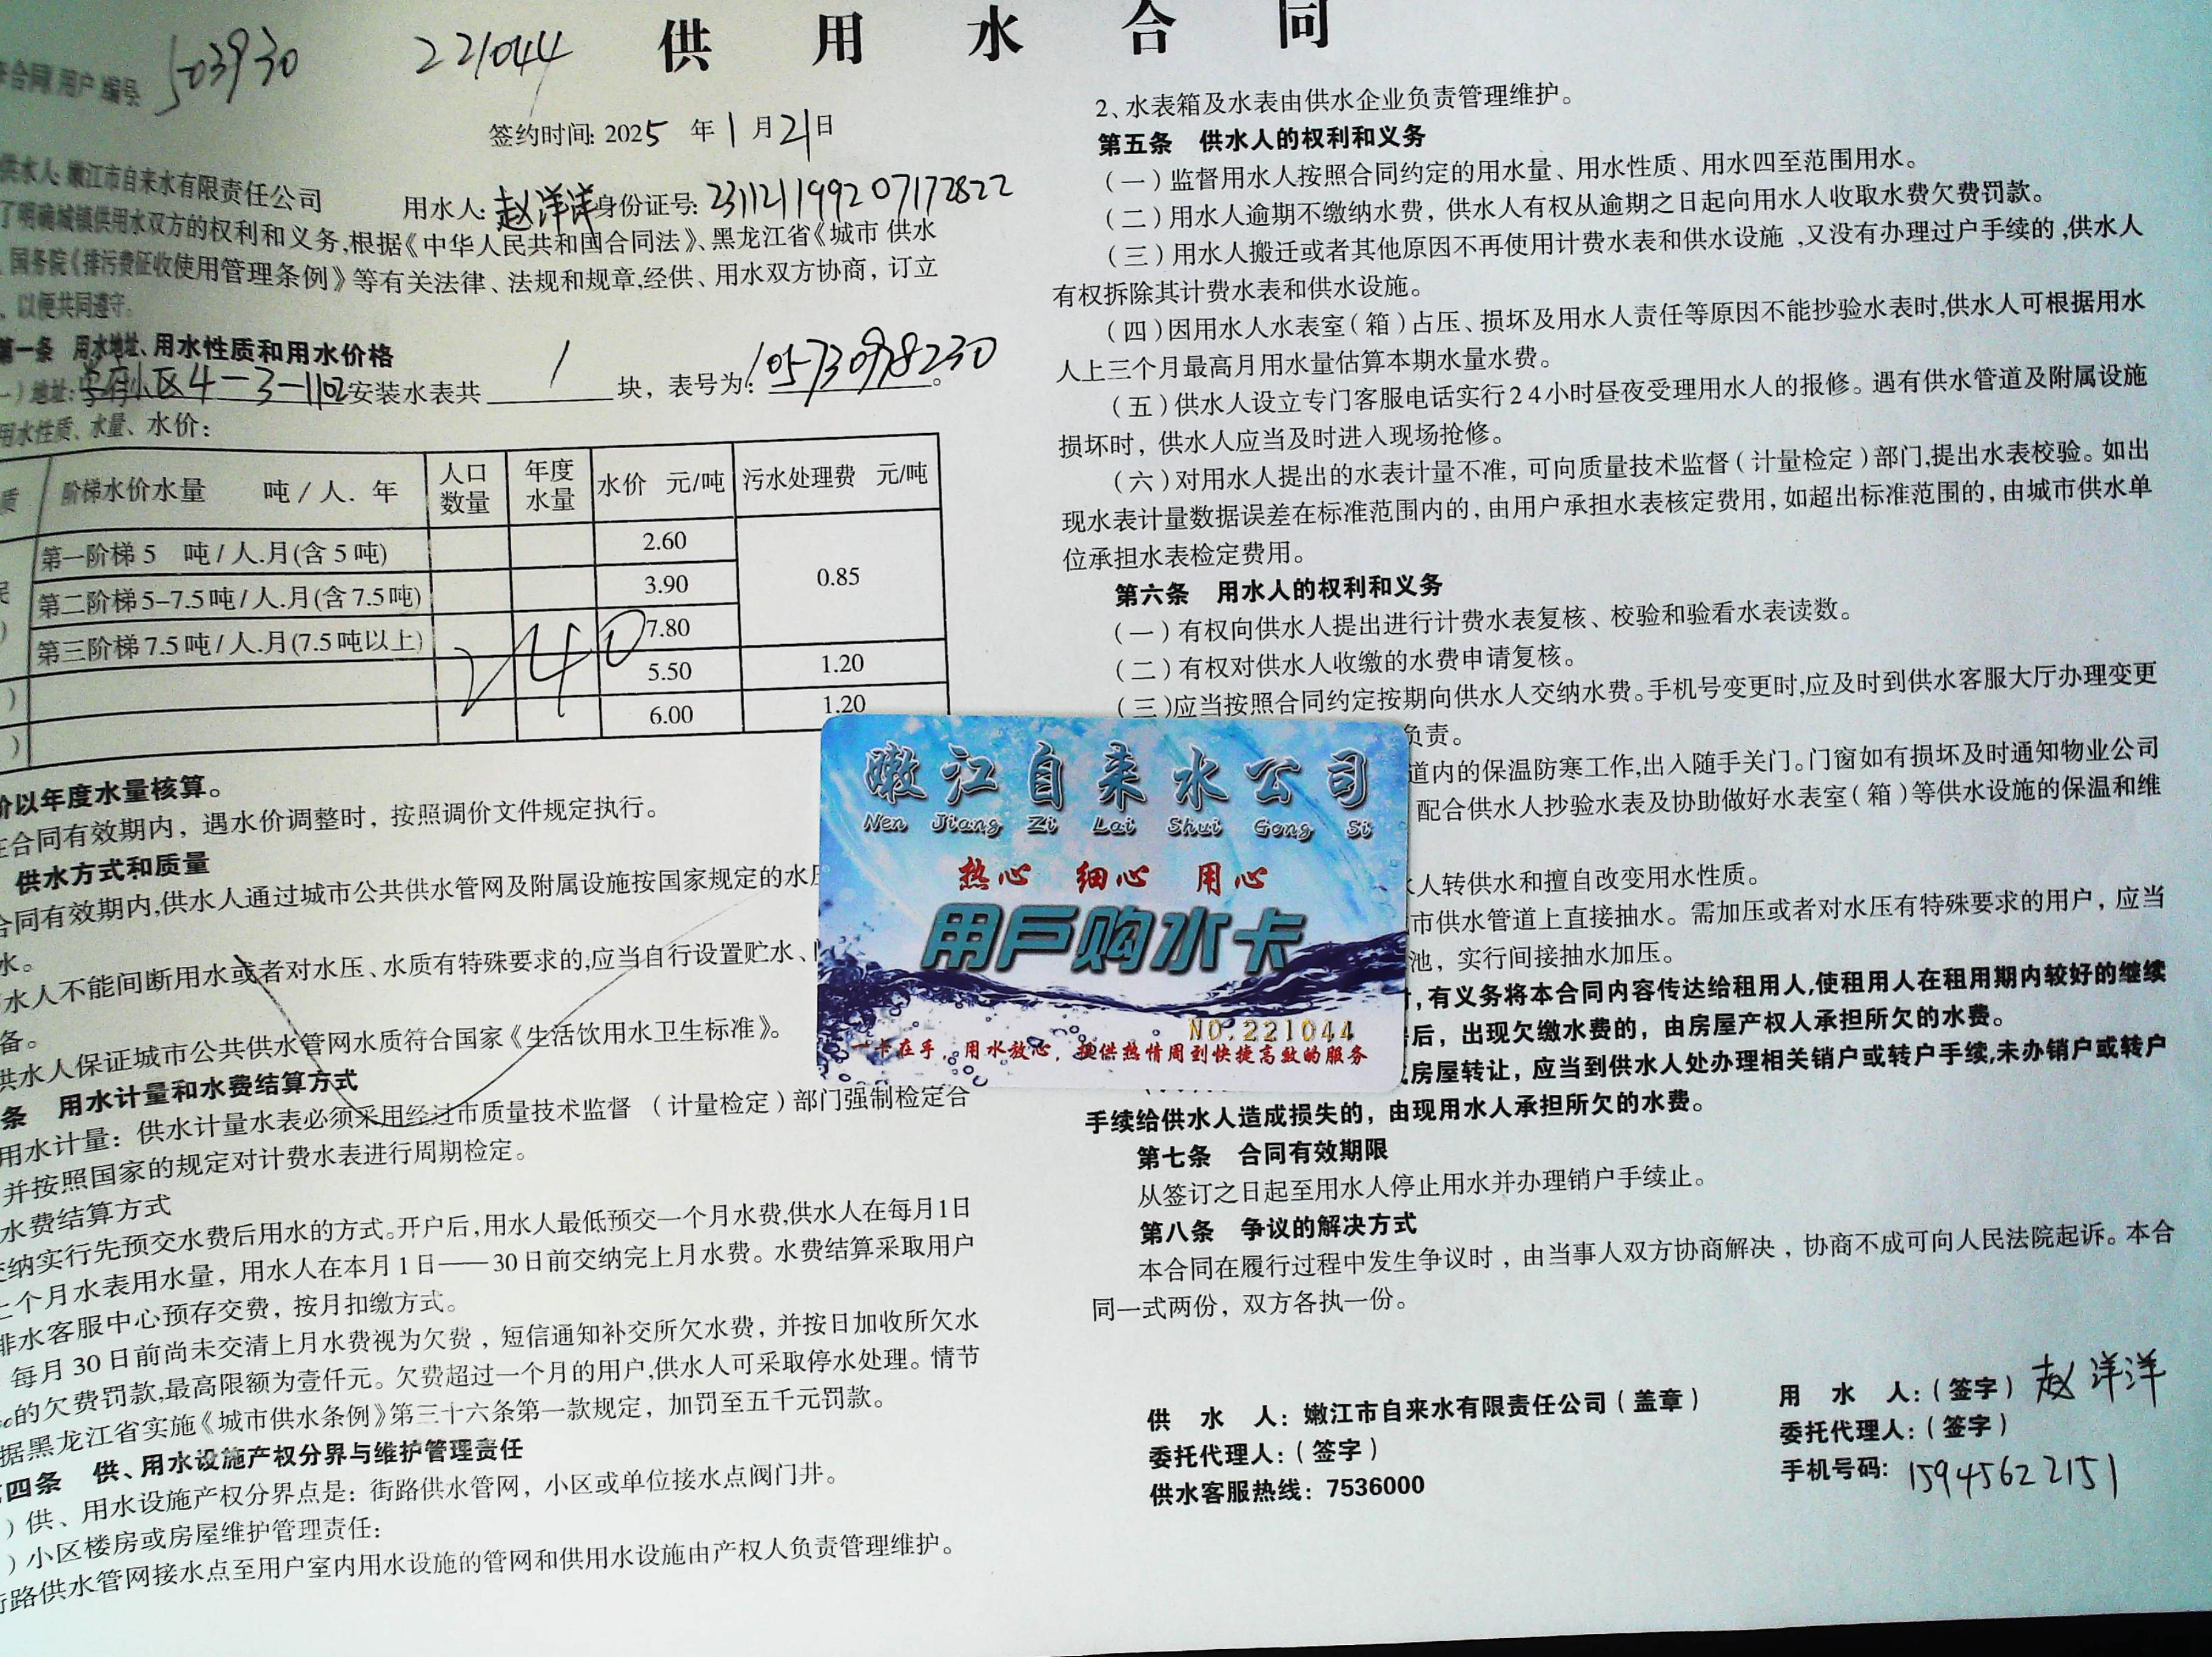 供用水合同
合同用户编号 503930 221044
签约时间: 2025 年 1 月 21 日
供水人: 嫩江市自来水有限责任公司
用水人: 赵洋洋 身份证号: 231121199207172822
了明确城镇供用水双方的权利和义务,根据《中华人民共和国合同法》、黑龙江省《城市 供水
国务院《排污费征收使用管理条例》等有关法律、法规和规章,经供、用水双方协商，订立
以便共同遵守.
第一条 用水地址、用水性质和用水价格
地址: 小区4-3-1102 安装水表共 1 块，表号为: 。
用水性质、水量、水价：
质 阶梯水价水量 吨/人. 年 人口数量 年度水量 水价 元/吨 污水处理费 元/吨
第一阶梯 5 吨/人.月(含5吨) 2.60 0.85
第二阶梯 5-7.5吨/人.月(含7.5吨) 3.90
第三阶梯 7.5吨/人.月(7.5吨以上) 7.80
240
5.50 1.20
6.00 1.20
价以年度水量核算。
在合同有效期内，遇水价调整时，按照调价文件规定执行。
供水方式和质量
合同有效期内,供水人通过城市公共供水管网及附属设施按国家规定的水压
水。
水人不能间断用水或者对水压、水质有特殊要求的,应当自行设置贮水、
备。
供水人保证城市公共供水管网水质符合国家《生活饮用水卫生标准》。
条 用水计量和水费结算方式
用水计量：供水计量水表必须采用经过市质量技术监督 （计量检定）部门强制检定合
并按照国家的规定对计费水表进行周期检定。
水费结算方式
纳实行先预交水费后用水的方式。开户后,用水人最低预交一个月水费,供水人在每月1日
个月水表用水量，用水人在本月1日——30日前交纳完上月水费。水费结算采取用户
排水客服中心预存交费，按月扣缴方式。
每月30日前尚未交清上月水费视为欠费，短信通知补交所欠水费，并按日加收所欠水
的欠费罚款,最高限额为壹仟元。欠费超过一个月的用户,供水人可采取停水处理。情节
据黑龙江省实施《城市供水条例》第三十六条第一款规定，加罚至五千元罚款。
四条 供、用水设施产权分界与维护管理责任
）供、用水设施产权分界点是：街路供水管网，小区或单位接水点阀门井。
）小区楼房或房屋维护管理责任：
街路供水管网接水点至用户室内用水设施的管网和供用水设施由产权人负责管理维护。
2、水表箱及水表由供水企业负责管理维护。
第五条 供水人的权利和义务
（一）监督用水人按照合同约定的用水量、用水性质、用水四至范围用水。
（二）用水人逾期不缴纳水费，供水人有权从逾期之日起向用水人收取水费欠费罚款。
（三）用水人搬迁或者其他原因不再使用计费水表和供水设施，又没有办理过户手续的,供水人
有权拆除其计费水表和供水设施。
（四）因用水人水表室（箱）占压、损坏及用水人责任等原因不能抄验水表时,供水人可根据用水
人上三个月最高月用水量估算本期水量水费。
（五）供水人设立专门客服电话实行24小时昼夜受理用水人的报修。遇有供水管道及附属设施
损坏时，供水人应当及时进入现场抢修。
（六）对用水人提出的水表计量不准，可向质量技术监督（计量检定）部门,提出水表校验。如出
现水表计量数据误差在标准范围内的，由用户承担水表核定费用，如超出标准范围的，由城市供水单
位承担水表检定费用。
第六条 用水人的权利和义务
（一）有权向供水人提出进行计费水表复核、校验和验看水表读数。
（二）有权对供水人收缴的水费申请复核。
（三）应当按照合同约定按期向供水人交纳水费。手机号变更时,应及时到供水客服大厅办理变更
负责。
道内的保温防寒工作,出入随手关门。门窗如有损坏及时通知物业公司
配合供水人抄验水表及协助做好水表室（箱）等供水设施的保温和维
人转供水和擅自改变用水性质。
市供水管道上直接抽水。需加压或者对水压有特殊要求的用户，应当
池，实行间接抽水加压。
，有义务将本合同内容传达给租用人,使租用人在租用期内较好的继续
后，出现欠缴水费的，由房屋产权人承担所欠的水费。
房屋转让，应当到供水人处办理相关销户或转户手续,未办销户或转户
手续给供水人造成损失的，由现用水人承担所欠的水费。
第七条 合同有效期限
从签订之日起至用水人停止用水并办理销户手续止。
第八条 争议的解决方式
本合同在履行过程中发生争议时，由当事人双方协商解决，协商不成可向人民法院起诉。本合
同一式两份，双方各执一份。
供 水 人：嫩江市自来水有限责任公司（盖章）
委托代理人：（签字）
供水客服热线：7536000
用 水 人：（签字）赵洋洋
委托代理人：（签字）
手机号码：15945622151
嫩江自来水公司
Nen Jiang Zi Lai Shui Gong Si
热心 细心 用心
用户购水卡
NO.221044
一卡在手，用水放心，提供热情周到快捷高效的服务